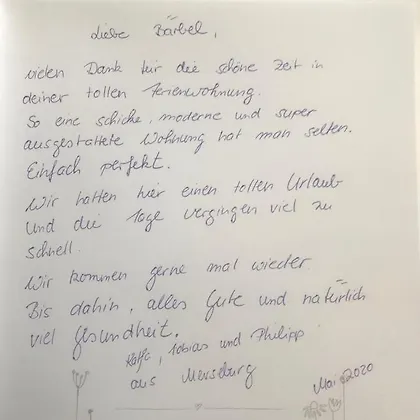 Liebe Bärbel,
vielen Dank für die schöne Zeit in
deiner tollen Ferienwohnung.
So eine schicke, moderne und super
ausgestattete Wohnung hat man selten.
Einfach perfekt.
Wir hatten hier einen tollen Urlaub
und die Tage vergingen viel zu
schnell.
Wir kommen gerne mal wieder.
Bis dahin, alles Gute und natürlich
viel Gesundheit.
Tobias und Philipp
aus Merseburg
Mai 2020